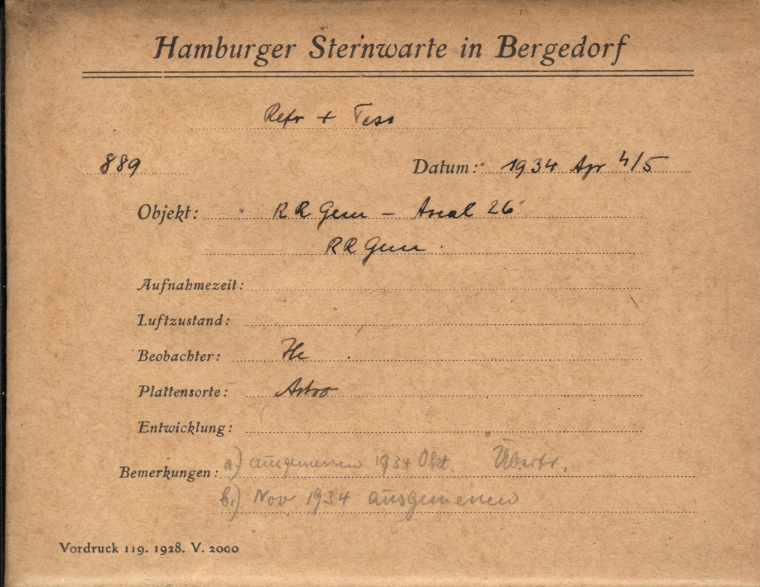 Hamburger Sternwarte in Bergedorf
Refr + Tess
889 Datum: 1934 Apr 4/5
Objekt: RR Gem – 26
RR Gem.
Aufnahmezeit:
Luftzustand:
Beobachter: He
Plattensorte: Astro
Entwicklung:
Bemerkungen: a) ausgemessen 1934 Okt. Übertr.
b.) Nov 1934 ausgemessen
Vordruck 119. 1928. V. 2000